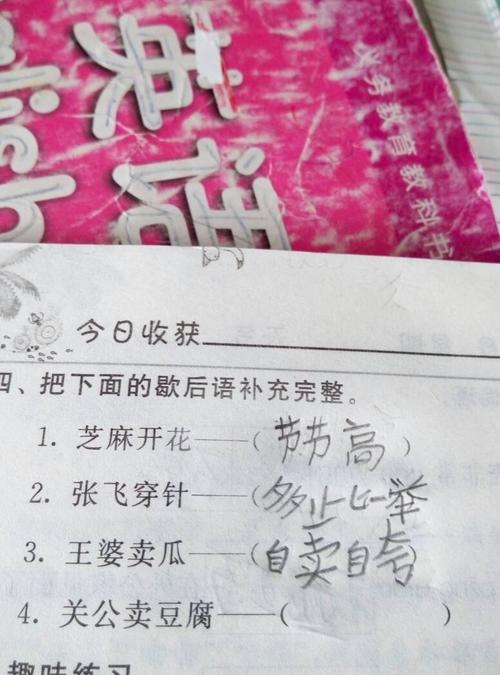 英语
义务教育教科书
今日收获
四、把下面的歇后语补充完整。
1. 芝麻开花——(节节高)
2. 张飞穿针——(多此一举
3. 王婆卖瓜——(自卖自夸)
4. 关公卖豆腐——( )
趣味练习